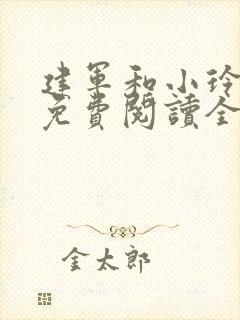 建军和小玲
免費閱讀全
金太郎